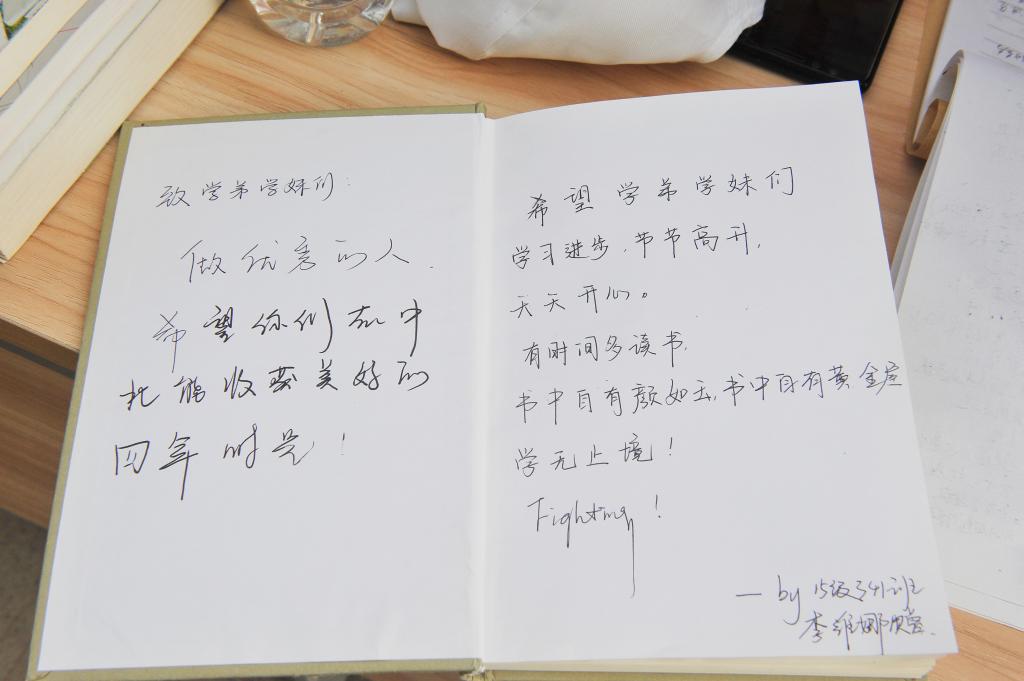 致学弟学妹们：
做优秀的人.
希望你们在中
北能收获美好的
四年时光！
希望学弟学妹们
学习进步,节节高升,
天天开心。
有时间多读书,
书中自有颜如玉,书中自有黄金屋
学无止境！
Fighting！
— by 15级341班
李维娜